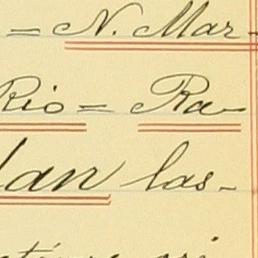 = N. Mar-
Rio = Ra-
lan las-